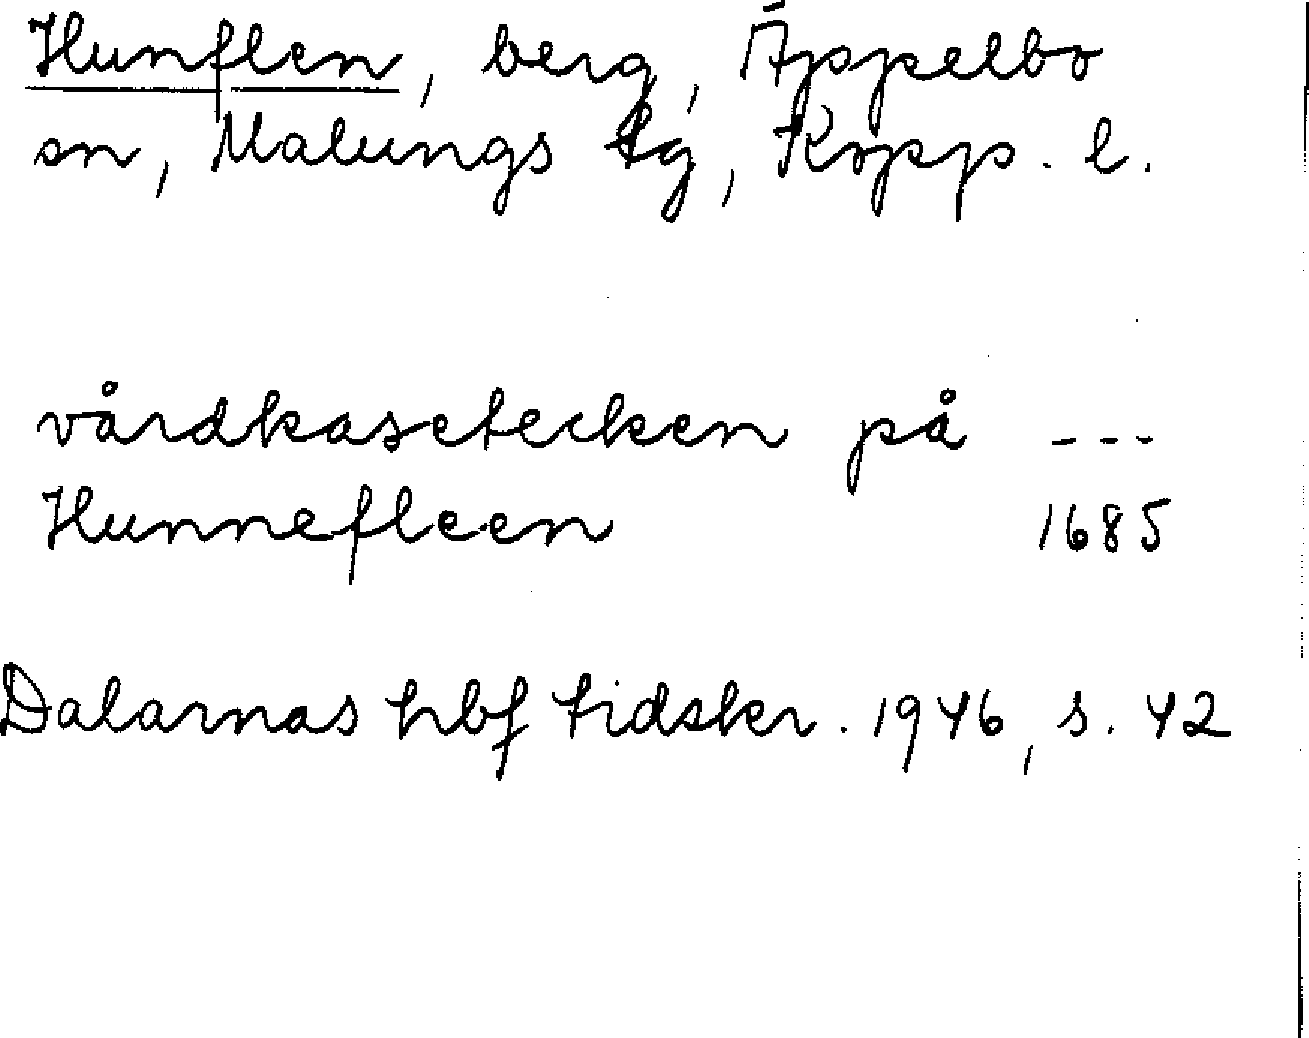 Hunflen, berg, Äppelbo
sn, Malungs tg, Kopp. l.
vårdkasetecken på ---
Hunnefleen 1685
Dalarnas hbf tidskr. 1946, s. 42